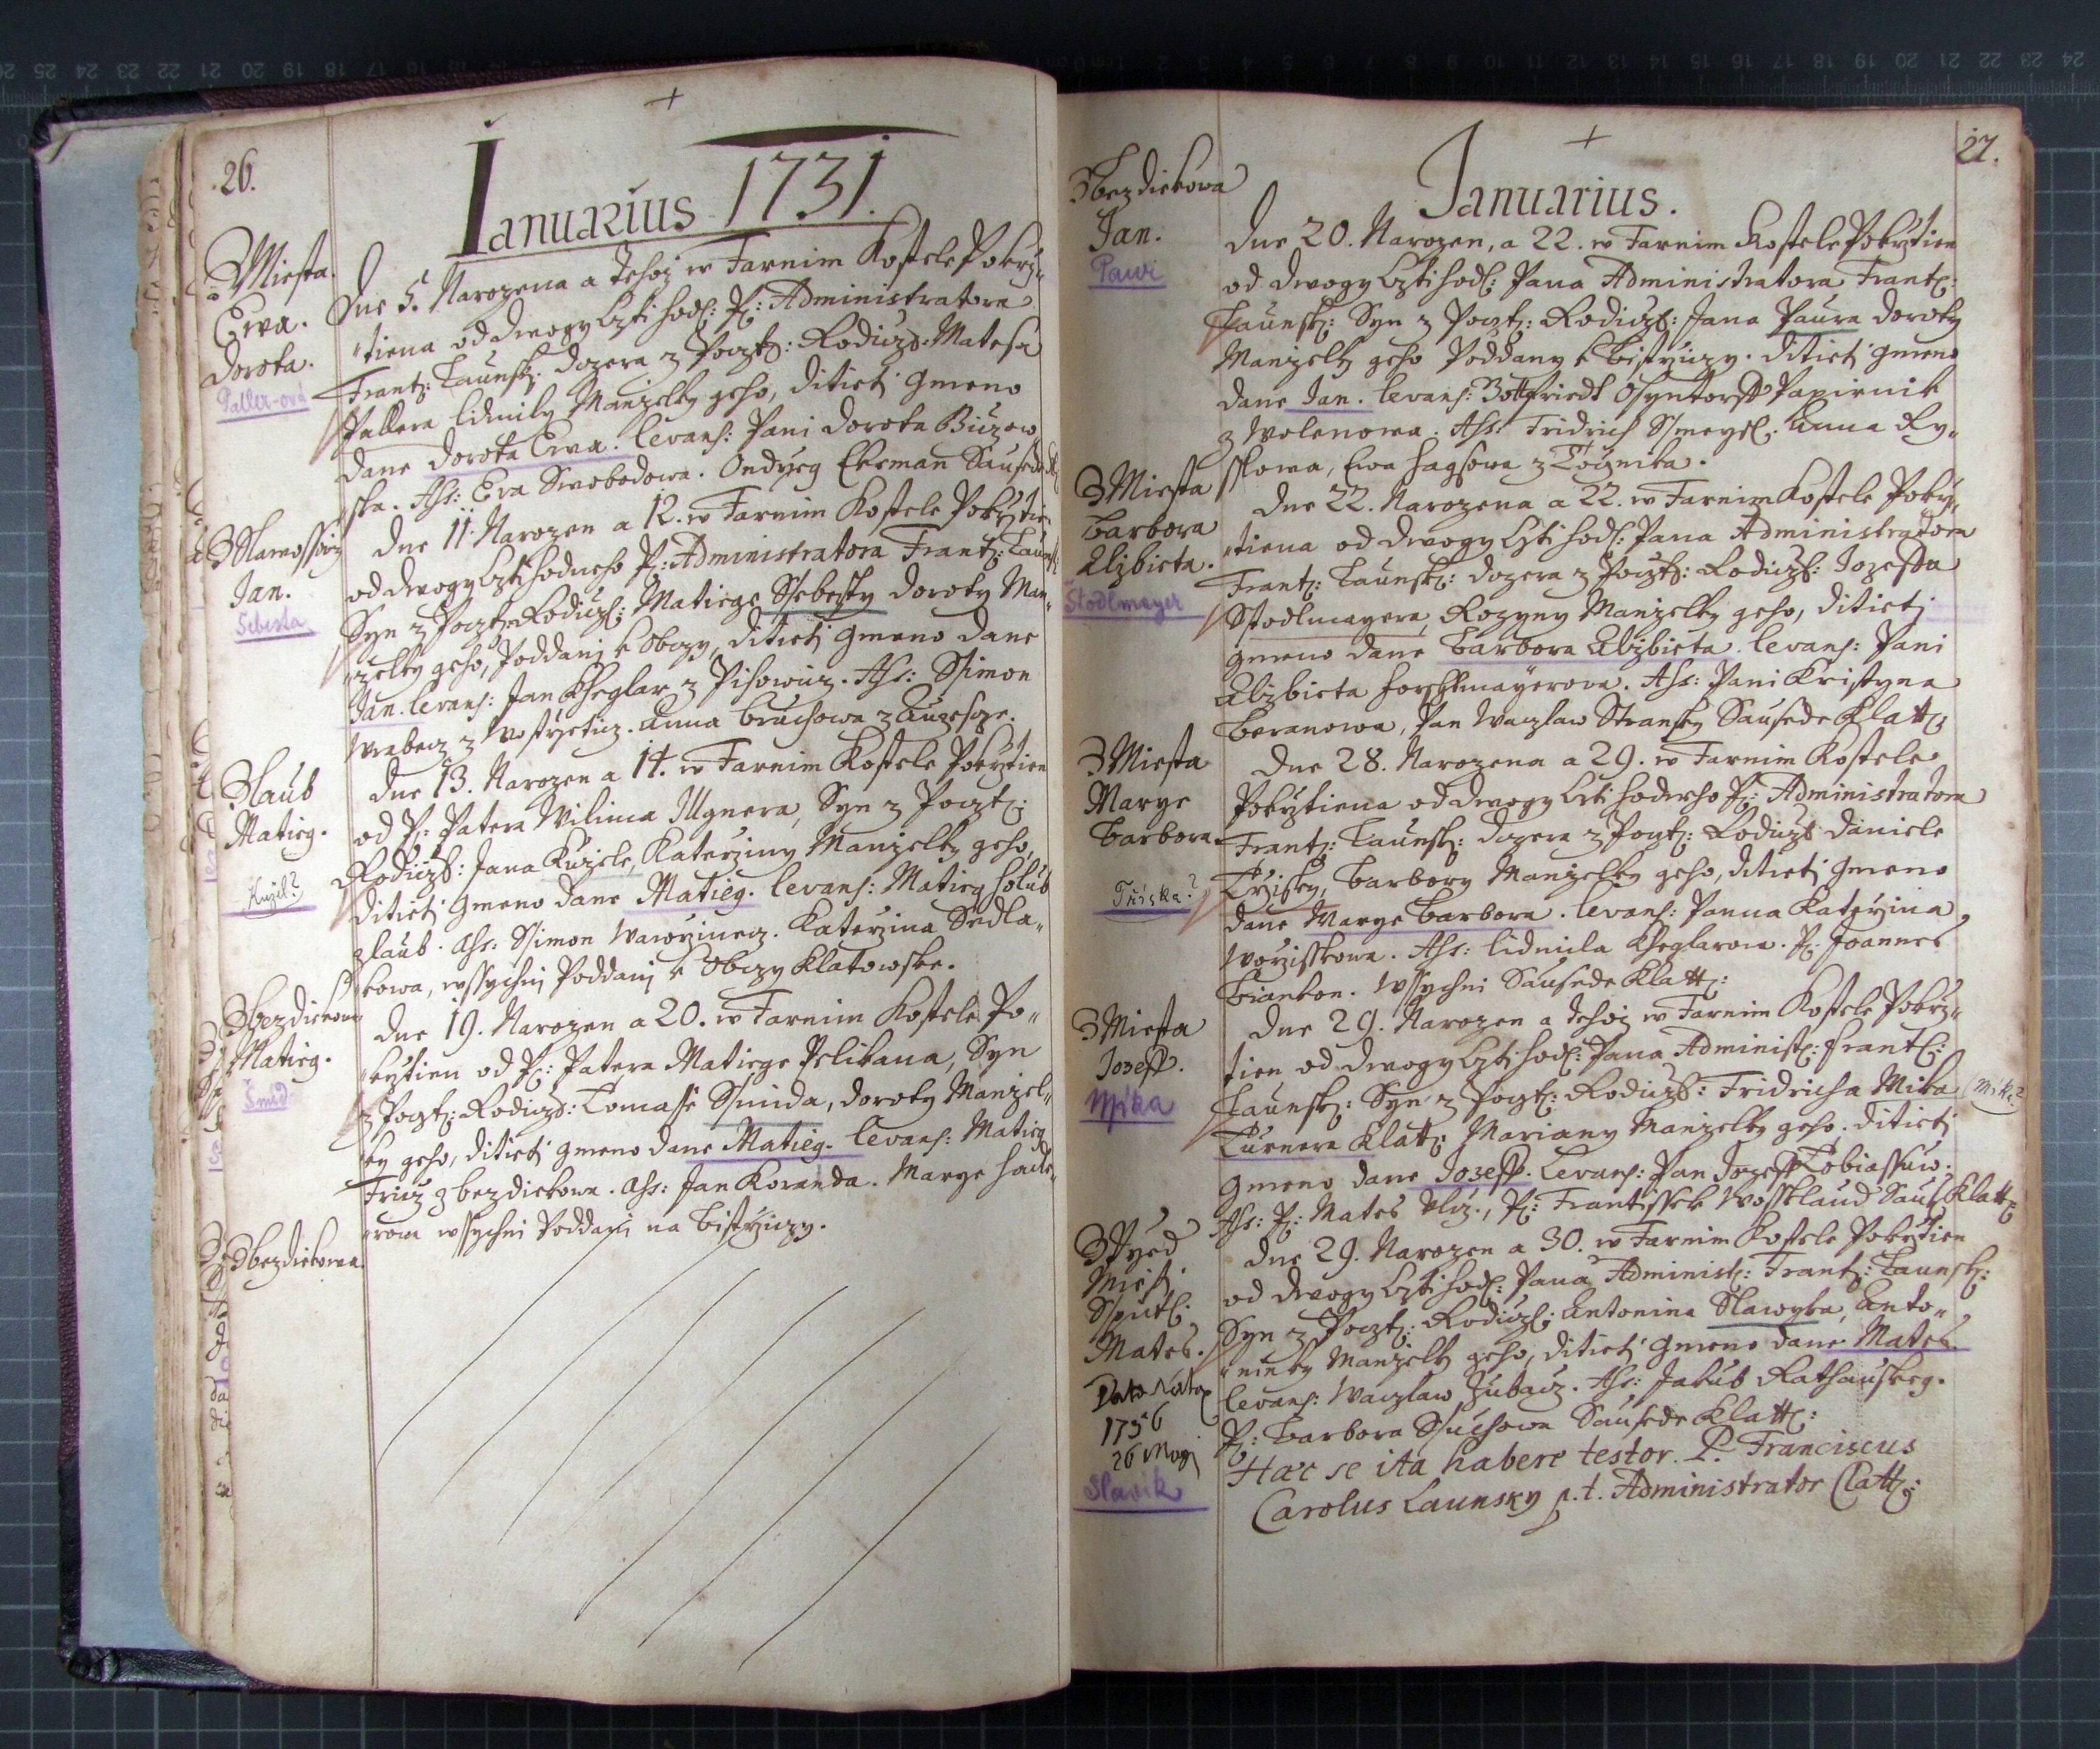 26.
Januarius 1731.
Z Miesta.
Ewa.
Dorota.
Paller-ová
Dne 5. Narozena a tehoz w Farnim Kostele Pokrz„
„tiena od dwogy Czti hod: P: Administratora
Frantz: Launsk: Dczera z Poczt: Rodicz: Matesa
Pallera Lidmily Manzelky geho, ditieti gmeno
dane Dorota Ewa. Levans: Pani Dorota
ska. Ass: Eva Swobodowa. Ondrzeg Ekrman Sausede
Jan.
Sebesta
Dne 11. Narozen a 12. w Farnim Kostele Pokrztie
od dwogy Cztihodneho P: Administratora Frantz: Launs:
Syn z Poczt: Rodicz: Matiege Ssebesty Doroty Man„
„zelky geho, Poddani k Obczy, ditieti gmeno dane
Jan. Levans: Jan Kheglar z Pihowicz. Ass: Ssimon
Wrabecz z Anna
Z laub
Matieg.
Kuzel?
Dne 13. Narozen a 14. w Farnim Kostele Pokrztien
od P: Patera Wilima Illgnera, Syn z Poczt:
Rodicz: Jana Kuzele, Katerziny Manzelky geho,
ditieti gmeno dane Matieg. Levans: Matieg Holub
z laub. Ass: Ssimon Wawrzinecz. Katerzina Sedla„
„kowa, wssychni Poddani k Obczy Klatowske.
Z bezdiekowa
Matieg.
Šmid
Dne 19. Narozen a 20. w Farnim Kostele Po„
„krztien od P: Patera Matiege Pelikana, Syn
z Poczt: Rodicz: Tomasse Ssmida, Doroty Manzel„
ky geho, ditieti gmeno dane Matieg. Levans: Matieg
Fricz z bezdiekowa. Ass: Jan Koranda. Marye
„rowa wssychni Poddani na Bistrziczy.
Z bezdiekowa.
27.
Januarius.
Z bezdiekowa
Jan.
Paur
Dne 20. Narozen, a 22. w Farnim Kostele Pokrztien
od dwogy Czti hod: Pana Administratora Frantz:
Launsk: Syn z Poczt: Rodicz: Jana Paura Doroty
Manzelky geho Poddany k Bistrziczy. ditieti gmeno
dane Jan. Levans: Papirnik
z Wolenowa. Ass: Fridrich Anna Ry„
sskowa, Ewa
Z Miesta
Barbora
Alzbieta.
Štodlmayer
Dne 22. Narozena a 22. w Farnim Kostele Pokrz„
„tiena od dwogy Czti hod: Pana Administratora
Frantz: Launsk: Dczera z Poczt: Rodicz: Jozeffa
Sstodlmayera, Rozyny Manzelky geho, ditieti
gmeno dane Barbora Alzbieta. Levans: Pani
Alzbieta Ass: Pani Kristyna
Beranowa, Pan Waczlaw Stransky Sausede Klatt:
Z Miesta
Marye
Barbora.
Tříska?
Dne 28. Narozena a 29. w Farnim Kostele
Pokrztiena od dwogy Czti hodneho P: Administratora
Frantz: Launsk: Dczera z Poczt: Rodicz: Daniele
Trzisky, Barbory Manzelky geho, ditieti gmeno
dane Marye Barbora. Levans: Panna Katerzina
Worzisskowa. Ass: Lidmila Kheglarowa. P: Joannes
Wssychni Sausede Klatt:
Z Miesta
Jozeff.
Mika
Dne 29. Narozen a tehoz w Farnim Kostele Pokrz„
tien od dwogy Czti hod: Pana Administ: Frantz:
Launsk: Syn z Poczt: Rodicz: Fridricha Mika (Mika?
Turnera Klatt: Mariany Manzelky geho. ditieti
gmeno dane Jozeff. Levans: Pan Jozeff
Ass: P: Mates P: Frantissek Saus: Klatt:
Miest.
Mates.
1756
26
Slavík
Dne 29. Narozen a 30. w Farnim Kostele Pokrztien
od dwogy Czti hod: Pana Administ: Frantz: Launsk:
Syn z Poczt: Rodicz: Antonina Slawyka, Anto„
„ninky Manzelky geho, ditieti gmeno dane Mates.
Levans: Waczlaw Zubacz. Ass: Jakub Rathauskeg.
P: Barbora Sausede Klatt:
Haec se ita habere testor. P. Franciscus
Carolus Launsky p.t. Administrator Clatt: